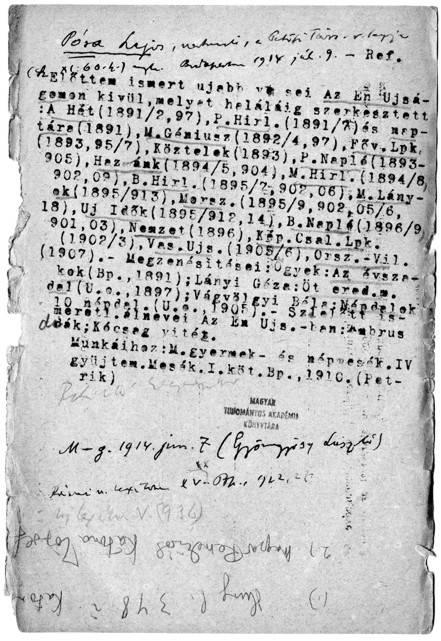 Pósa Lajos,
(XI. 60.4.) Budapesten 1914 júl. 9. – Ref.
(Előttem ismert ujabb v sei Az Én Ujsá-
gomon kivül,melyet haláláig szerkesztett
:A Hét(1891/2,97),P.Hirl.(1891/7)és nap-
tára(1891),M.Géniusz(1892/4,97),Föv.Lpk.
(1893,95/7),Köztelek(1893),P.Napló(1893-
905),Haz ánk(1894/5,904),M.Hirl.(1894/8,
902,09),B.Hirl.(1895/7,902,06),M.Lány-
ok(1895/913),Morsz.(1895/9,902,05/6,
18),Uj Idők(1895/912,14),B.Napló(1896/9
901,03),Nemzet(1896),Kép.Csal.Lpk.
(1902/3),Vas.Ujs.(1905/6),Orsz.-Vil.
(1907).- Megzenésitései:Ogyek:Az évsza-
kok(Bp.,1891);Lányi Géza:Öt ered.m.
dal(U.o.,1897);Vágvölgyi Béla:Népdalok
10 népdal (U.o.,1905).-
meretl.álnevei Az Én Ujs.-ban:Ambrus
deák;Kócsag vitéz.
Munkáihoz:M.gyermek- és népmesék.IV
gyüjtem.Mesék.I.köt.Bp.,1910.(Pet-
rik)
MAGYAR
TUDOMÁNYOS AKADÉMIA
KÖNYVTÁRA
M–g. 1914. jún. 7 (Gyöngyösy László)
Uj lexikon V. (936)
2.) Magyar Rendezők Katona József
1.) 348